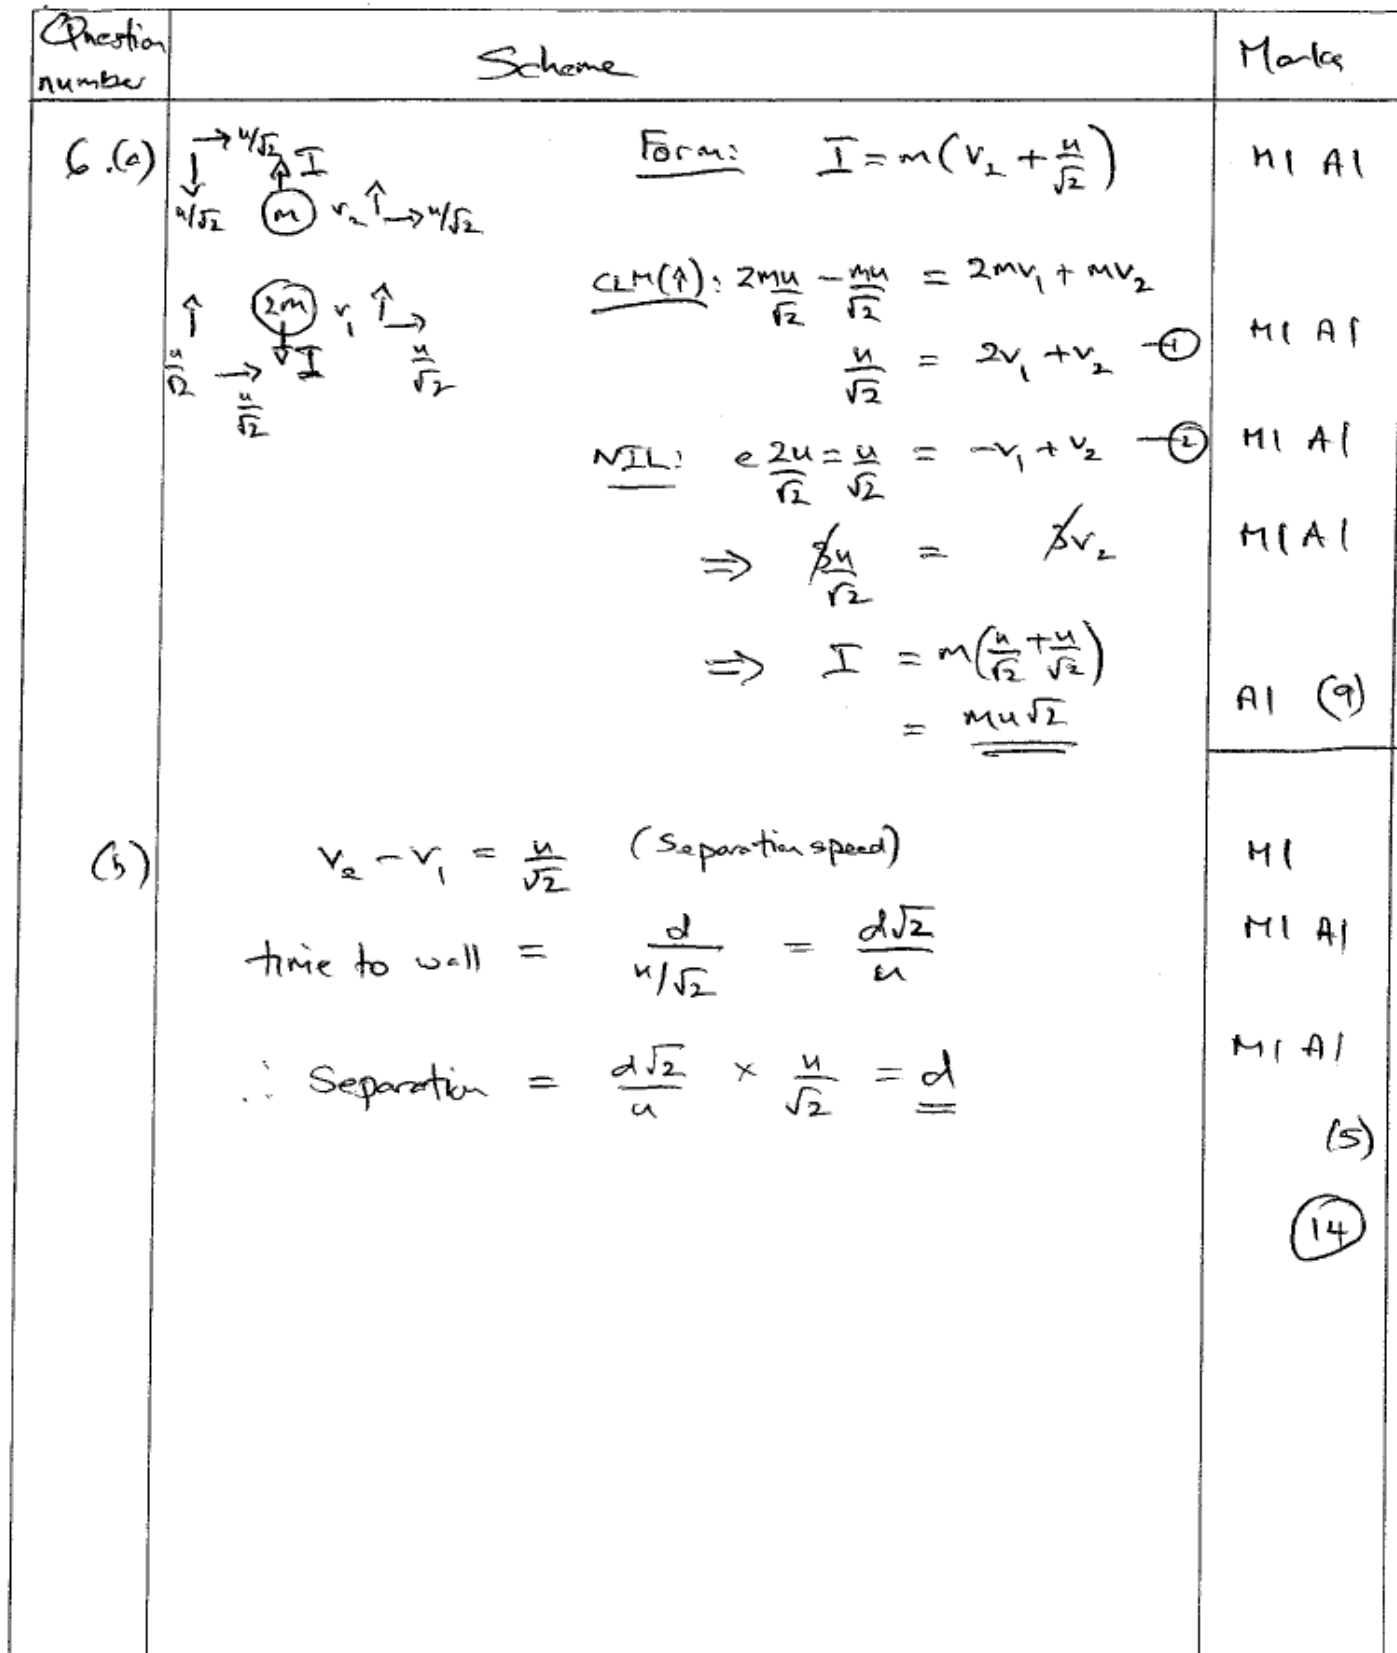 Question number Scheme Marks
6.(a) → u/√2 ↑ I Form: I = m(v₂ + u/√2) M1 A1
↓ u/√2 (m) v₂ ↑ → u/√2
CLM(↑): 2mu/√2 − mu/√2 = 2mv₁ + mv₂
↑ u/√2 (2m) v₁ ↑ → u/√2 ↓ I → u/√2
u/√2 = 2v₁ + v₂ —① M1 A1
NIL: e 2u/√2 = u/√2 = −v₁ + v₂ —② M1 A1
⇒ 3u/√2 = 3v₂ M1 A1
⇒ I = m(u/√2 + u/√2)
= mu√2 A1 (9)
(b) v₂ − v₁ = u/√2 (Separation speed) M1
time to wall = d/(u/√2) = d√2/u M1 A1
∴ Separation = d√2/u × u/√2 = d M1 A1
(5)
14